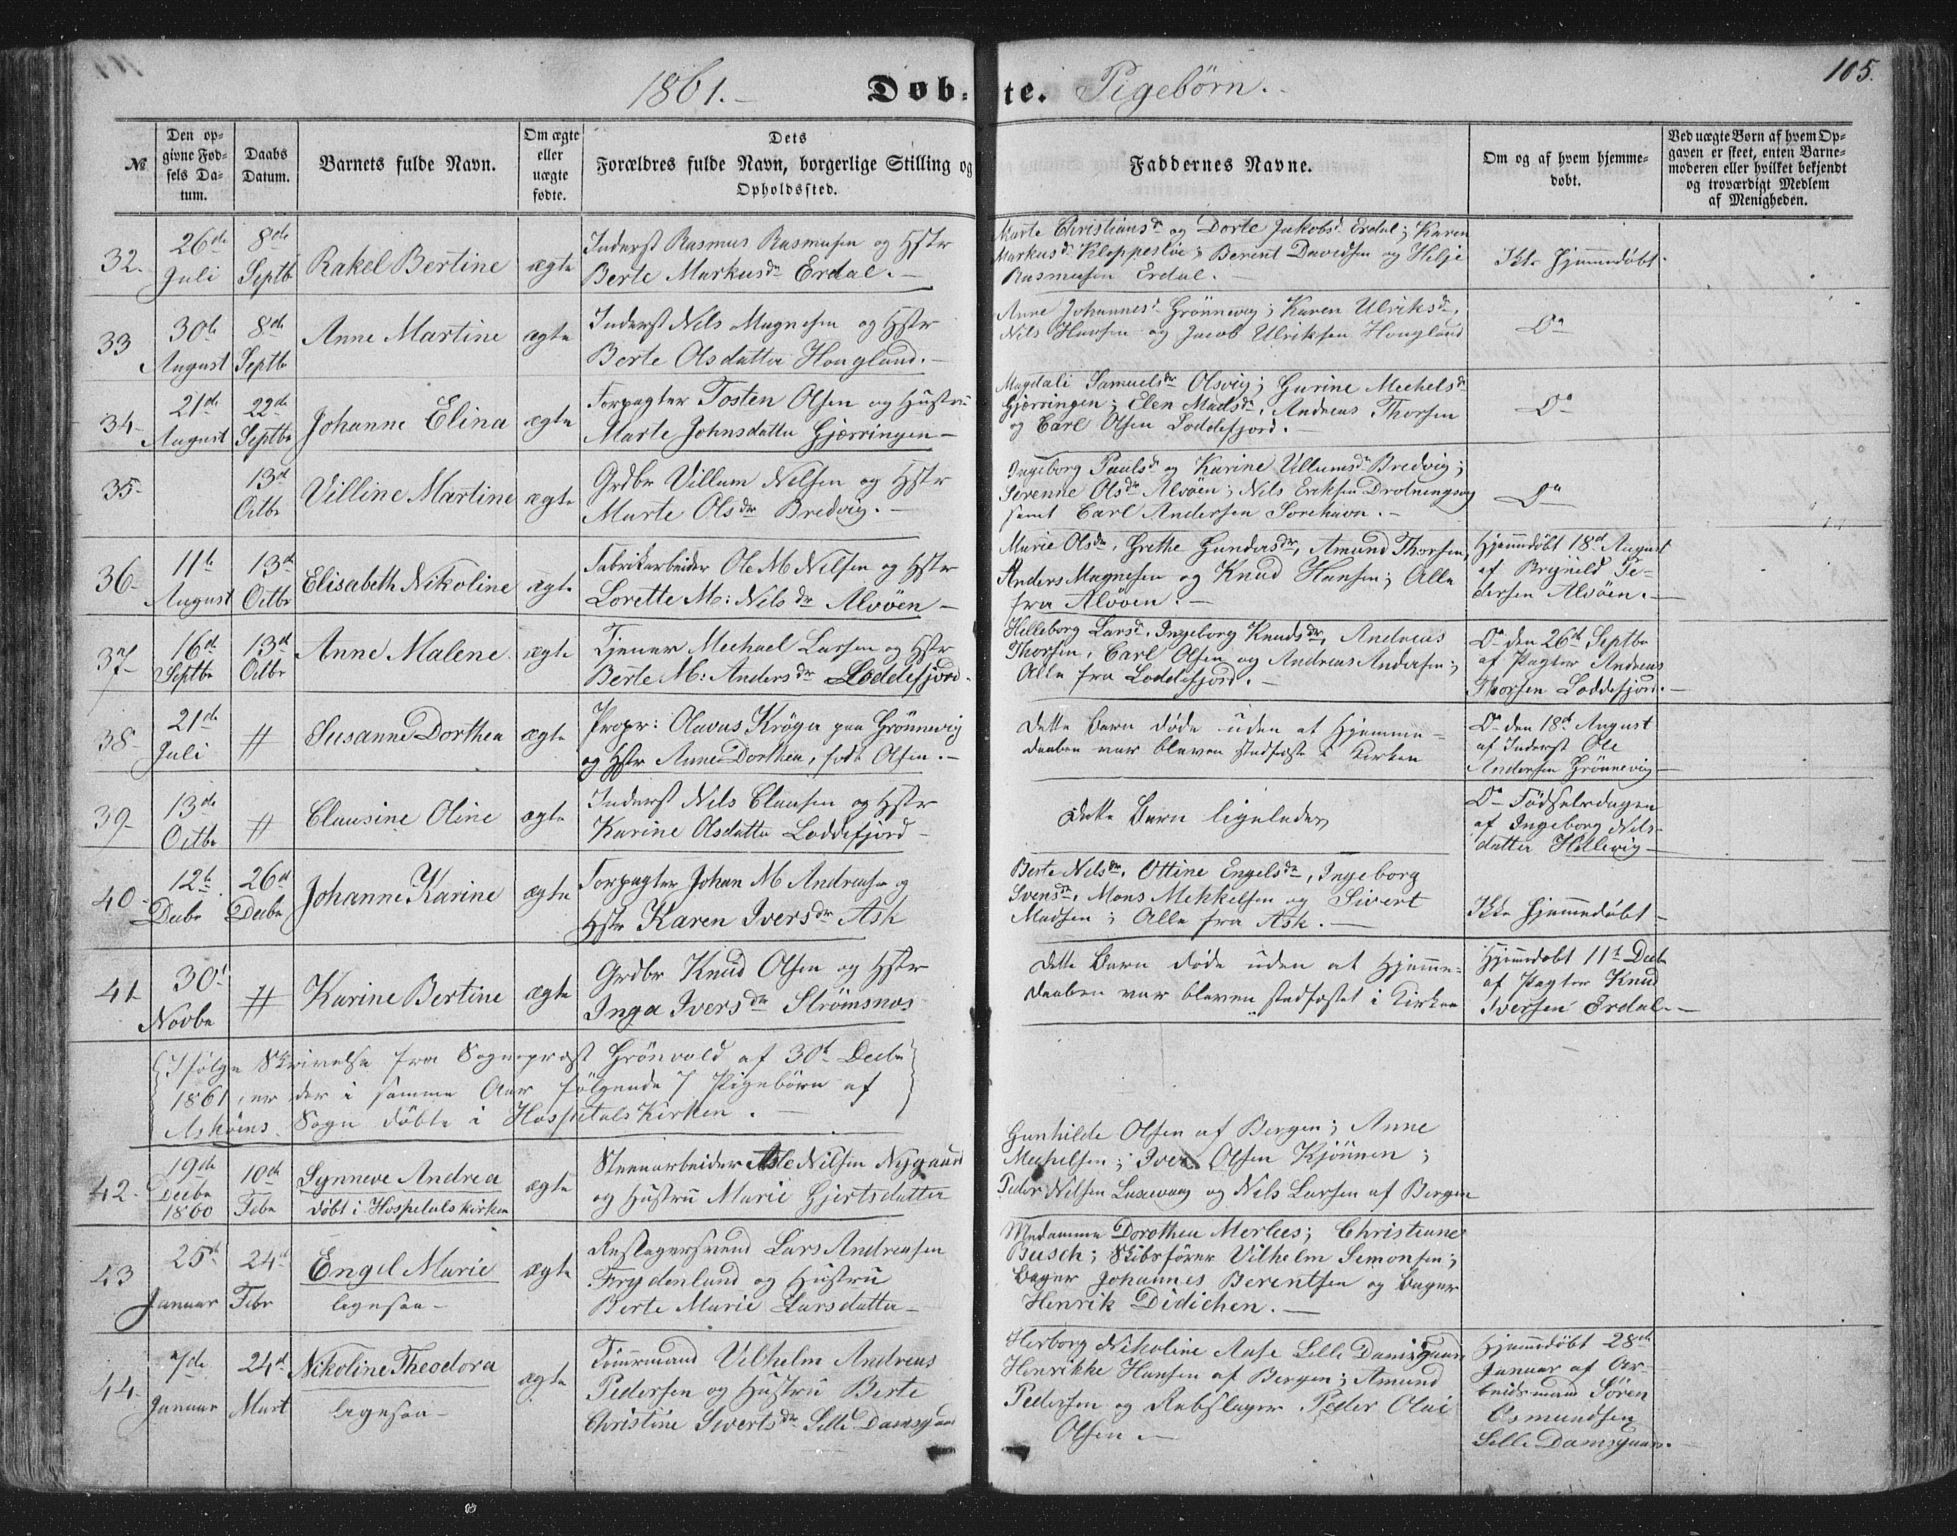 1861.- Døb-te. Pigebørn.- 105.
№
Den opgivne Fødsels Datum.
Daabs Datum.
Barnets fulde Navn.
Om ægte eller uægte fødte.
Dets
Forældres fulde Navn, borgerlige Stilling og
Opholdssted.
Faddernes Navne.
Om og af hvem hjemmedøbt.
Ved uægte Børn af hvem Opgaven er skeet, enten Barnemoderen eller hvilket bekjendt og troværdigt Medlem af Menigheden.
32. 26de Juli 8de Septb Rakel Bertine ægte
Inderst Rasmus Rasmusen og Hstr
Berte Markusdr Erdal.-
Marte Christiansdr og Dorte Jakobsd. Erdal; Karen
Markusdr Kleppestøe; Berent Davidsen og Helje
Rasmusen Erdal.-
Ikke Hjemmedøbt-
33 30te August 8de Septbr Anne Martine ægte
Inderst Nils Magnesen og Hstr
Berte Olsdatter Hougland.-
Anne Johannesd Grønnevig; Karen Ulriksdr,
Nils Hansen og Jacob Ulriksen Hougland
Do
34- 21de August 22de Septbr Johanne Elina ægte
Forpagter Tosten Olsen og Hustru
Marte Johnsdatter Gjerringen-
Magdali Samuelsdr Olsvig; Gurine Mechelsdr
Gjerringen; Elen Madsdr, Andreas Thorsen
og Carl Olsen Loddefjord.-
Do
35- 13de Octbr Villine Martine ægte
Grdbr Villum Nilsen og Hstr
Marte Olsdr Bredvig.-
Ingeborg Paulsdr og Karine Villumsdr Bredvig;
Serenne Olsdr Alvøen; Nils Eriksen Drotningsvig
samt Carl Andersen Sorehavn.-
Do
36- 11te August 13de Octbr Elisabeth Nikoline ægte
Fabrikarbeider Ole M Nilsen og Hstr
Lorette M: Nilsdr Alvøen-
Marie Olsdr, Grethe Gundersdr, Amund Thorsen,
Anders Magnesen og Knud Hansen; Alle
fra Alvøen.-
Hjemmedøbt 18de August
af Brynild Pe-
dersen Alvøen.-
37- 16de Septbr 13de Octbr Anne Malene ægte
Tjener Mechael Larsen og Hstr
Berte M: Andersdr Loddefjord-
Helleborg Larsdr, Ingeborg Knudsdr, Andreas
Thorsen, Carl Olsen og Andreas Andersen;
Alle fra Loddefjord.-
Do den 26de Septbr
af Pagter Andreas
Thorsen Loddefjord.-
38- 21de Juli # Susanne Dorthea ægte
Propr: Olavus Krøger paa Grønnevig
og Hstr Anne Dorthea, født Olsen.-
Dette Barn døde uden at Hjemme-
daaben var bleven stadfæstet i Kirken
Do den 18de August
af Inderst Ole
Andersen Grønnevig-
39- 13de Octbr # Clausine Oline ægte
Inderst Nils Clausen og Hstr
Karine Olsdatter Loddefjord-
Dette Barn ligeledes
Do Fødselsdagen
af Ingeborg Nils-
datter Hellevig-
40- 12te Decbr 26de Decbr Johanne Karine ægte
Forpagter Johan M Andreasen og
Hstr Karen Iversdr Ask
Berte Nilsdr, Ottine Engelsdr, Ingeborg
Svensdr, Mons Mekkelsen og Sivert
Madsen; Alle fra Ask.-
Ikke Hjemmedøbt-
41 30te Novbr # Karine Bertine ægte
Grdbr Knud Olsen og Hstr
Inga Iversdr Strømsnes
Dette Barn døde uden at Hjemme-
daaben var bleven stadfæstet i Kirken
Hjemmedøbt 11te Decbr
af Pagter Knud
Iversen Erdal.-
Ifølge Skrivelse fra Sognepræst Grønvold af 30te Decbr
1861, er der i samme Aar følgende 7 Pigebørn af
Askøens Sogn døbte i Hospitals Kirken.-
42. 19de Decbr 1860 10de Febr Synneve Andrea
døbt i Hospitalskirken ægte
Steenarbeider Asle Nilsen Nygaard
og Hustru Marie Gjertsdatter
Gunhilde Olsen af Bergen; Anne
Mechelsen; Iver Olsen Kjønnen;
Peder Nilsen Laxevaag og Nils Larsen af Bergen
43 25de Januar 24de Febr Engel Marie
ligesaa- ægte
Reslagersvend Lars Andreasen
Frydenlund og Hustru
Berte Marie Larsdatter-
Madamme Dorothea Merlees; Christiane
Busch; Skibsfører Vilhelm Semonsen;
Bager Johannes Berentsen og Bager
Henrik Didichen.-
44- 7de Januar 24de Mart Nikoline Theodora
ligesaa- ægte
Tømmermand Vilhelm Andreas
Pedersen og Hustru Berte
Christine Sivertsdr Lille Damsgaard
Herborg Nikoline Aase Lille Damsgaard
Henrikke Hansen af Bergen; Amund
Pedersen og Rebslager Peder Olai
Olsen.-
Hjemmedøbt 28de
Januar af Ar-
beidsmand Søren
Osmundsen
Lille Damsgaard.